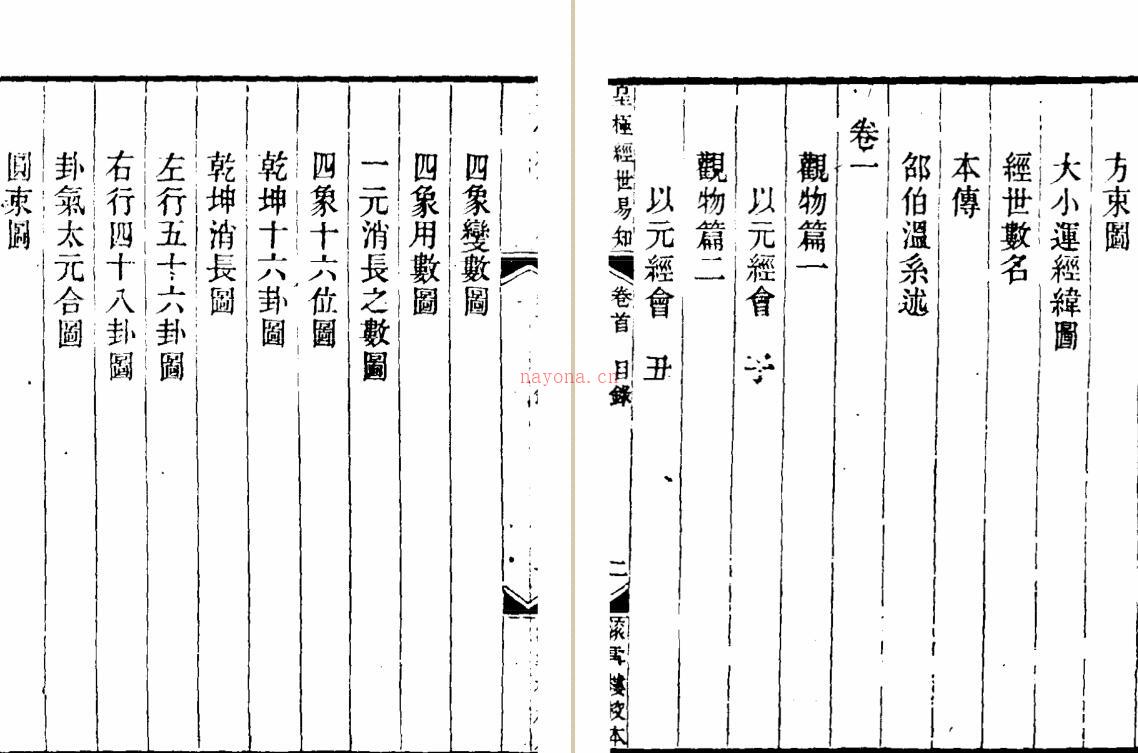 四象變數圖
四象用數圖
一元消長之數圖
四象十六位圖
乾坤十六卦圖
乾坤消長圖
左行五十六卦圖
右行四十八卦圖
卦氣太元合圖
圓東圖
方東圖
大小運經緯圖
經世數名
本傳
邵伯溫系述
卷一
觀物篇一
以元經會 子
觀物篇二
以元經會 丑
皇極經世易知 卷首 目錄 二
雪樓校本
nayona.cn